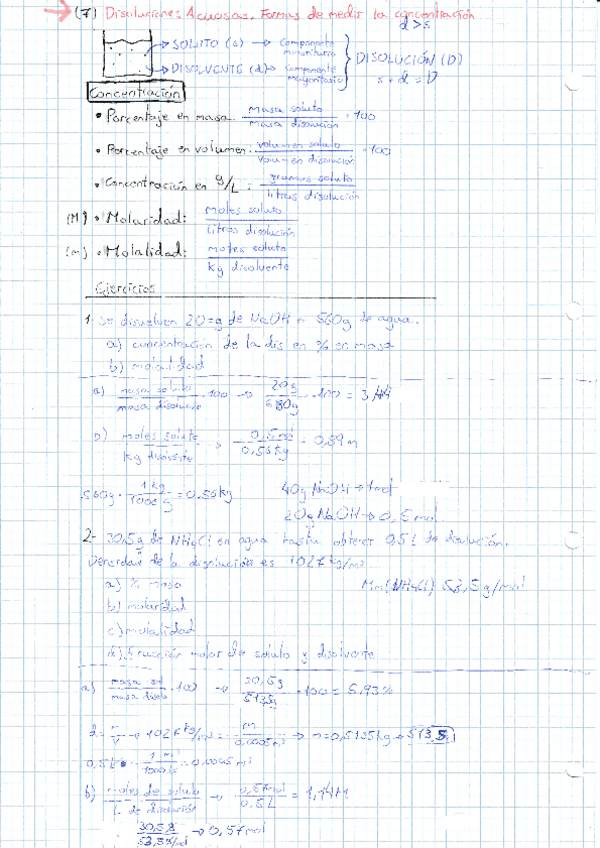 → (7) Disoluciones Acuosas. Formas de medir la concentración
d > s
→ SOLUTO (s) → Componente minoritario
→ DISOLVENTE (d) → Componente mayoritario
DISOLUCIÓN (D)
s + d = D
Concentración
• Porcentaje en masa: masa soluto / masa disolución · 100
• Porcentaje en volumen: volumen soluto / volumen disolución · 100
• Concentración en g/L : gramos soluto / litros disolución
(M) • Molaridad: moles soluto / litros disolución
(m) • Molalidad: moles soluto / kg disolvente
Ejercicios
1- Se disuelven 20 g de NaOH en 560g de agua.
a) concentración de la dis en % en masa
b) molalidad
a) masa soluto / masa disolución · 100 → 20g / 580g · 100 = 3,44
b) moles soluto / kg disolvente → 0,5mol / 0,56kg = 0,89 m
560g · 1kg / 1000g = 0.56kg
40g NaOH → 1mol
20g NaOH → 0,5 mol
2- 30,5g de NH4Cl en agua hasta obtener 0,5 l de disolución.
de la disolución es 1027 kg/m3
Mm(NH4Cl) 53,5 g/mol
a) % masa
b) molaridad
c) molalidad
d) Fracción molar de soluto y disolvente
a) masa sol / masa disolc · 100 → 30,5g / 513,5g · 100 = 5,93%
d = m / v → 1027 kg/m3 = m / 0,0005m3 → m = 0,5135kg → 513,5
0,5 l · 1 m3 / 1000 l = 0.0005 m3
b) moles de soluto / L. de disolución → 0,57mol / 0,5L = 1,14M
30,5g / 53,5g/mol → 0,57mol